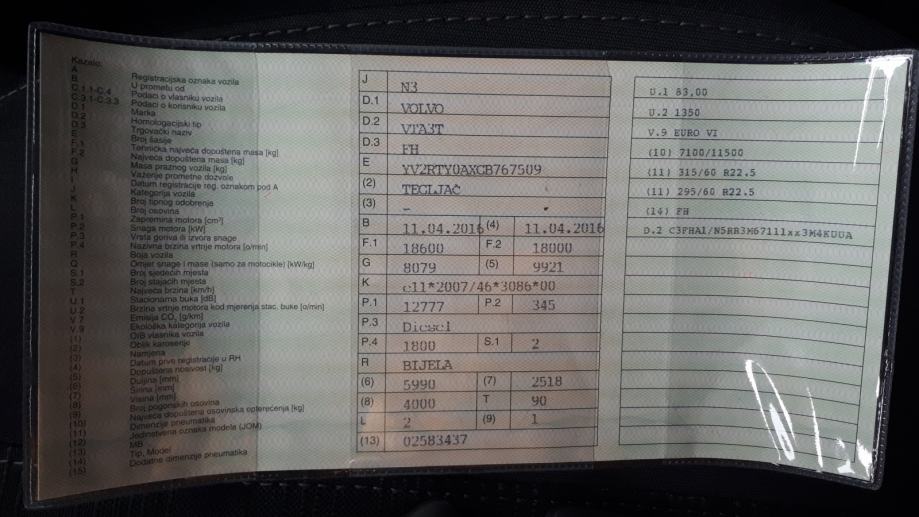 Kazalo:
A Registracijska oznaka vozila
B U prometu od
C.1.1-C.4 Podaci o vlasniku vozila
C.3.1-C.3.3 Podaci o korisniku vozila
D.1 Marka
D.2 Homologacijski tip
D.3 Trgovački naziv
E Broj šasije
F.1 Tehnička najveća dopuštena masa [kg]
F.2 Najveća dopuštena masa [kg]
G Masa praznog vozila [kg]
H Važenje prometne dozvole
I Datum registracije reg. oznakom pod A
J Kategorija vozila
K Broj tipnog odobrenja
L Broj osovina
P.1 Zapremina motora [cm³]
P.2 Snaga motora [kW]
P.3 Vrsta goriva ili izvora snage
P.4 Nazivna brzina vrtnje motora [o/min]
R Boja vozila
Q Omjer snage i mase (samo za motocikle) [kW/kg]
S.1 Broj sjedećih mjesta
S.2 Broj stajaćih mjesta
T Najveća brzina [km/h]
U.1 Stacionarna buka [dB]
U.2 Brzina vrtnje motora kod mjerenja stac. buke [o/min]
V.7 Emisija CO₂ [g/km]
V.9 Ekološka kategorija vozila
(1) OIB vlasnika vozila
(2) Oblik karoserije
(3) Namjena
(4) Datum prve registracije u RH
(5) Dopuštena nosivost [kg]
(6) Duljina [mm]
(7) Širina [mm]
(8) Visina [mm]
(9) Broj pogonskih osovina
(10) Najveća dopuštena osovinska opterećenja [kg]
(11) Dimenzije pneumatika
(12) Jedinstvena oznaka modela (JOM)
(13) MB
(14) Tip, Model
(15) Dodatne dimenzije pneumatika
J N3
D.1 VOLVO
D.2 VTA3T
D.3 FH
E YV2RTY0AXCB767509
(2) TEGLJAČ
(3) -
B 11.04.2016 (4) 11.04.2016
F.1 18600 F.2 18000
G 8079 (5) 9921
K e11*2007/46*3086*00
P.1 12777 P.2 345
P.3 Diesel
P.4 1800 S.1 2
R BIJELA
(6) 5990 (7) 2518
(8) 4000 T 90
L 2 (9) 1
(13) 02583437
U.1 83,00
U.2 1350
V.9 EURO VI
(10) 7100/11500
(11) 315/60 R22.5
(11) 295/60 R22.5
(14) FH
D.2 C3FHA1/N5RR3M67111xx3M4KDUA